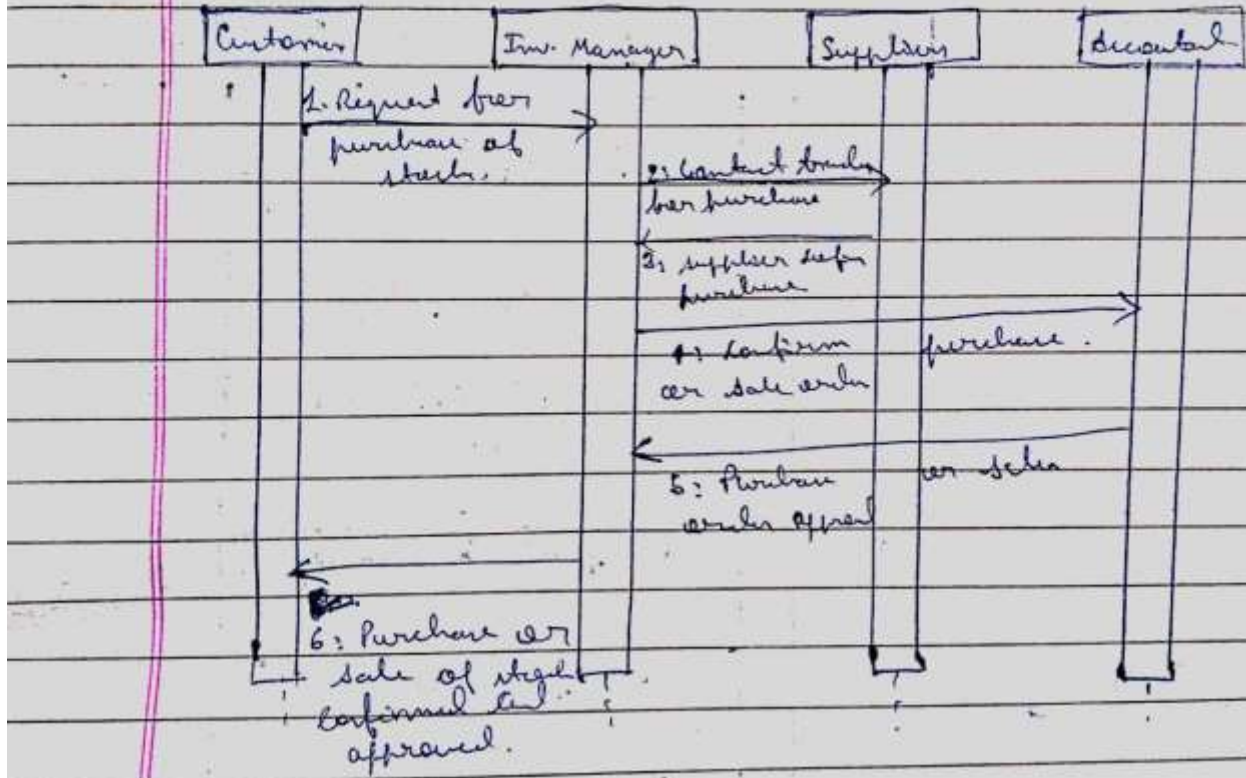 Customer
Inv. Manager
Suppliers
Accountant
1. Request for
purchase of
stock.
2: Contact
for purchase
3: supplier
purchase
4: Confirm purchase.
or sale order
5: Purchase or
order
6: Purchase or
sale of
confirmed and
approved.